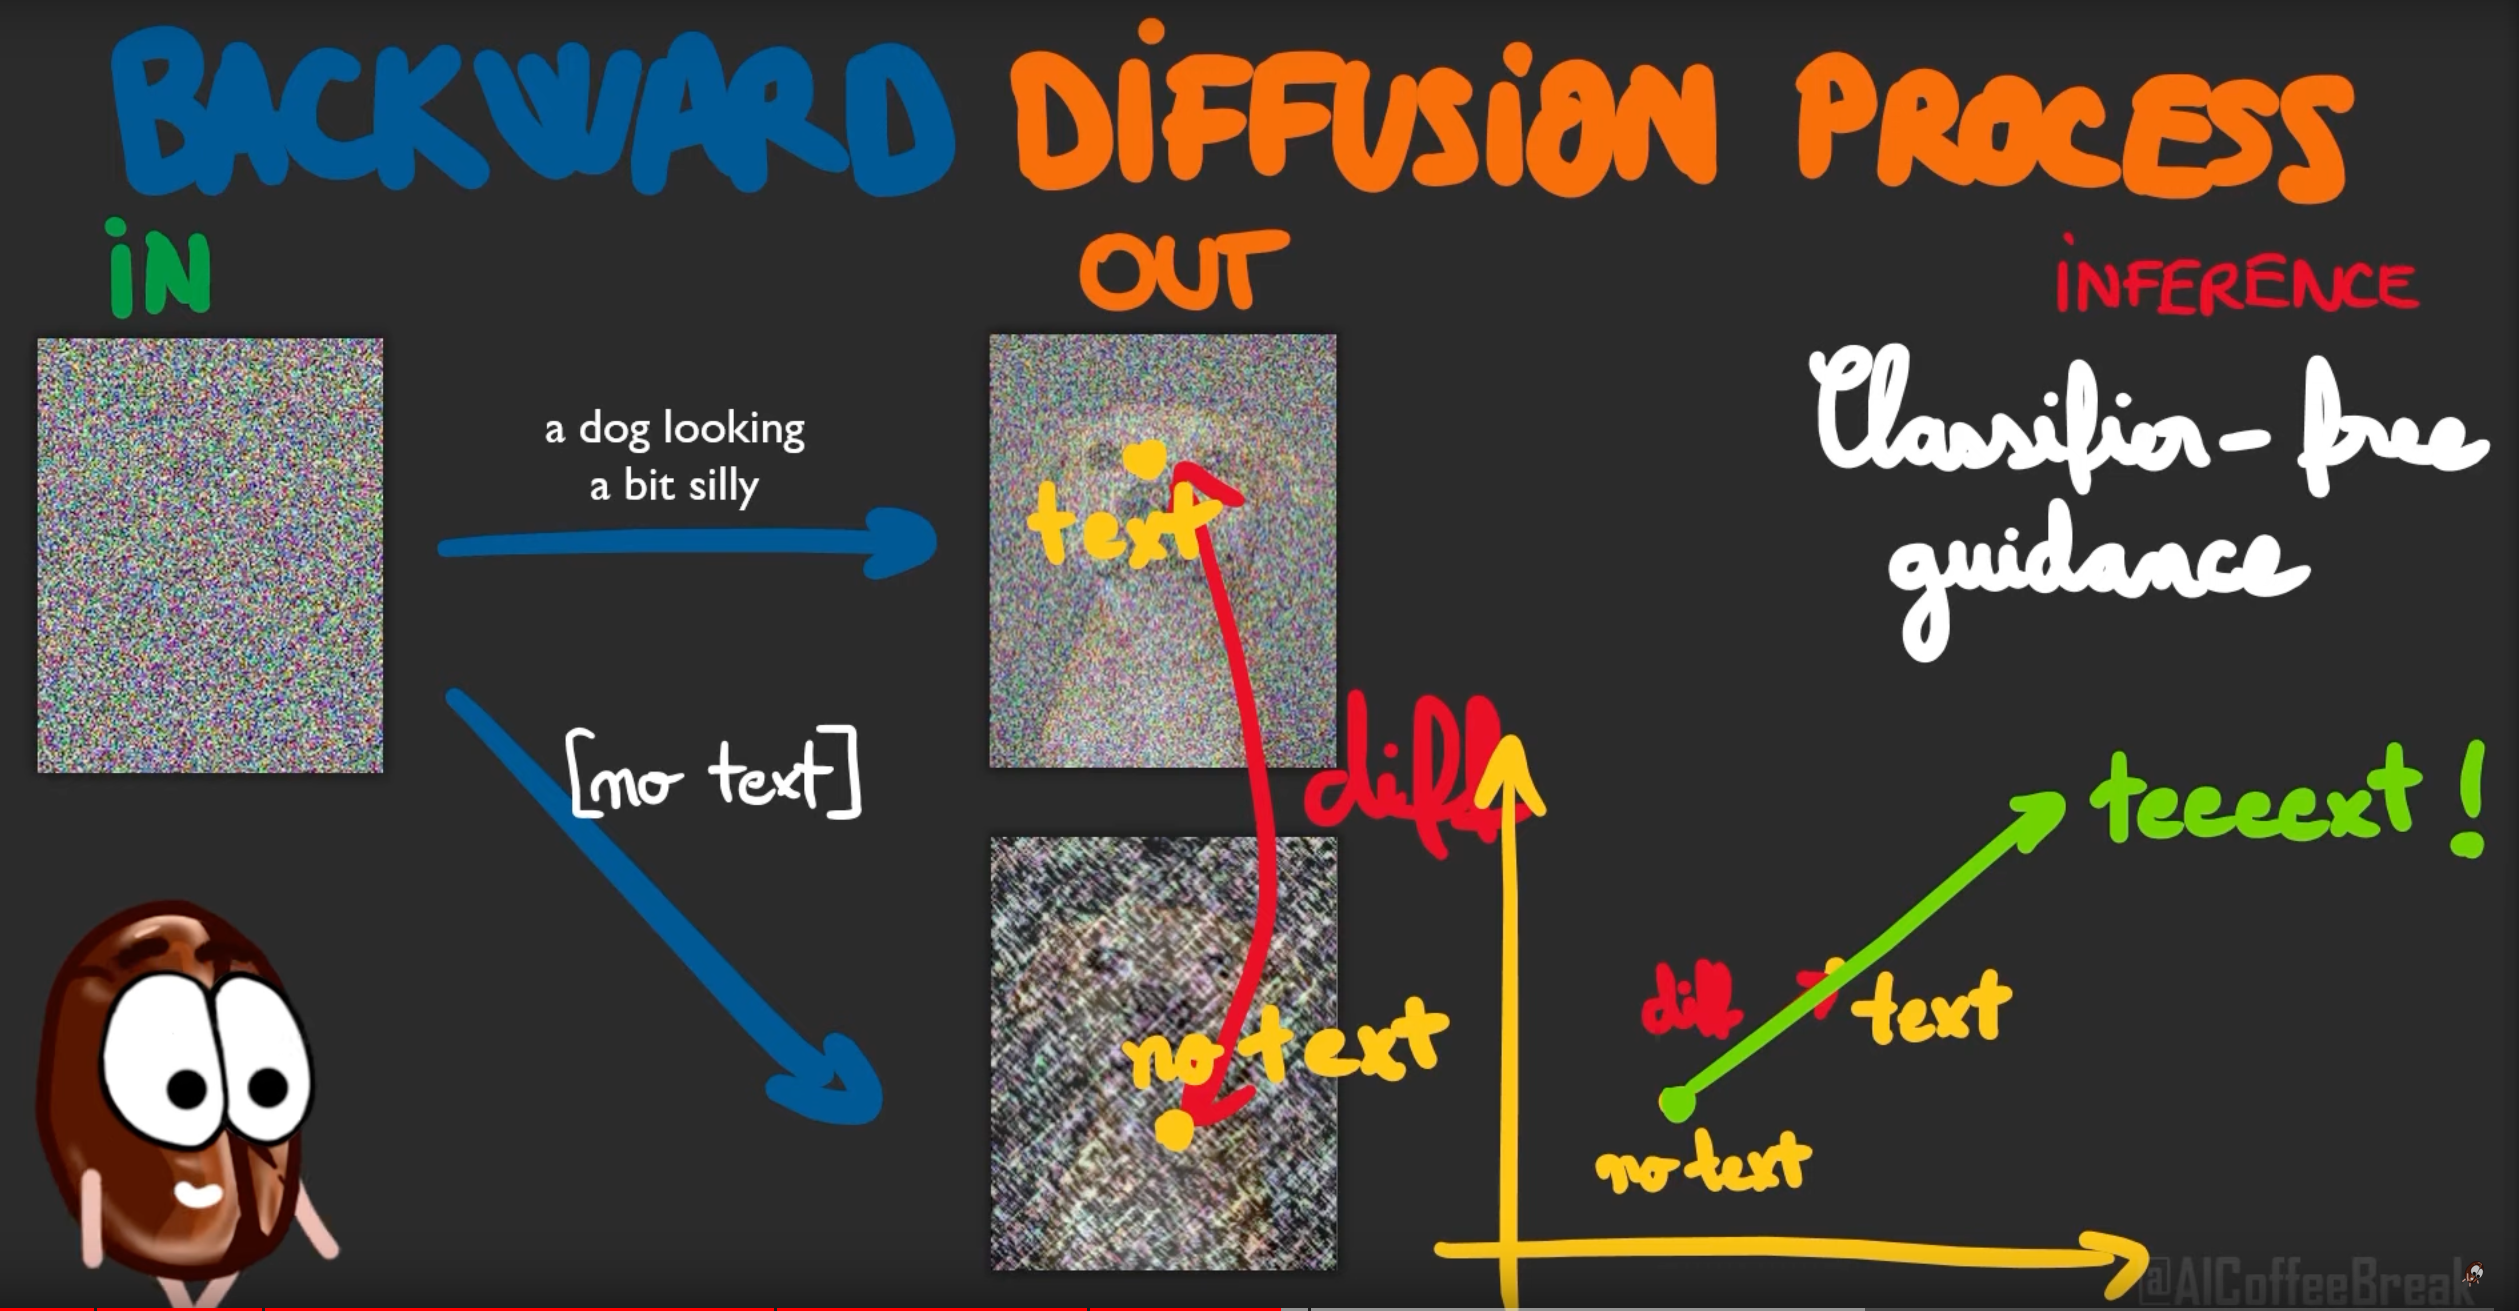 BACKWARD DIFFUSION PROCESS
IN
OUT
INFERENCE
Classifier-free
guidance
a dog looking
a bit silly
text
[no text]
diff
no text
teeeext!
diff
text
no text
@AICoffeeBreak